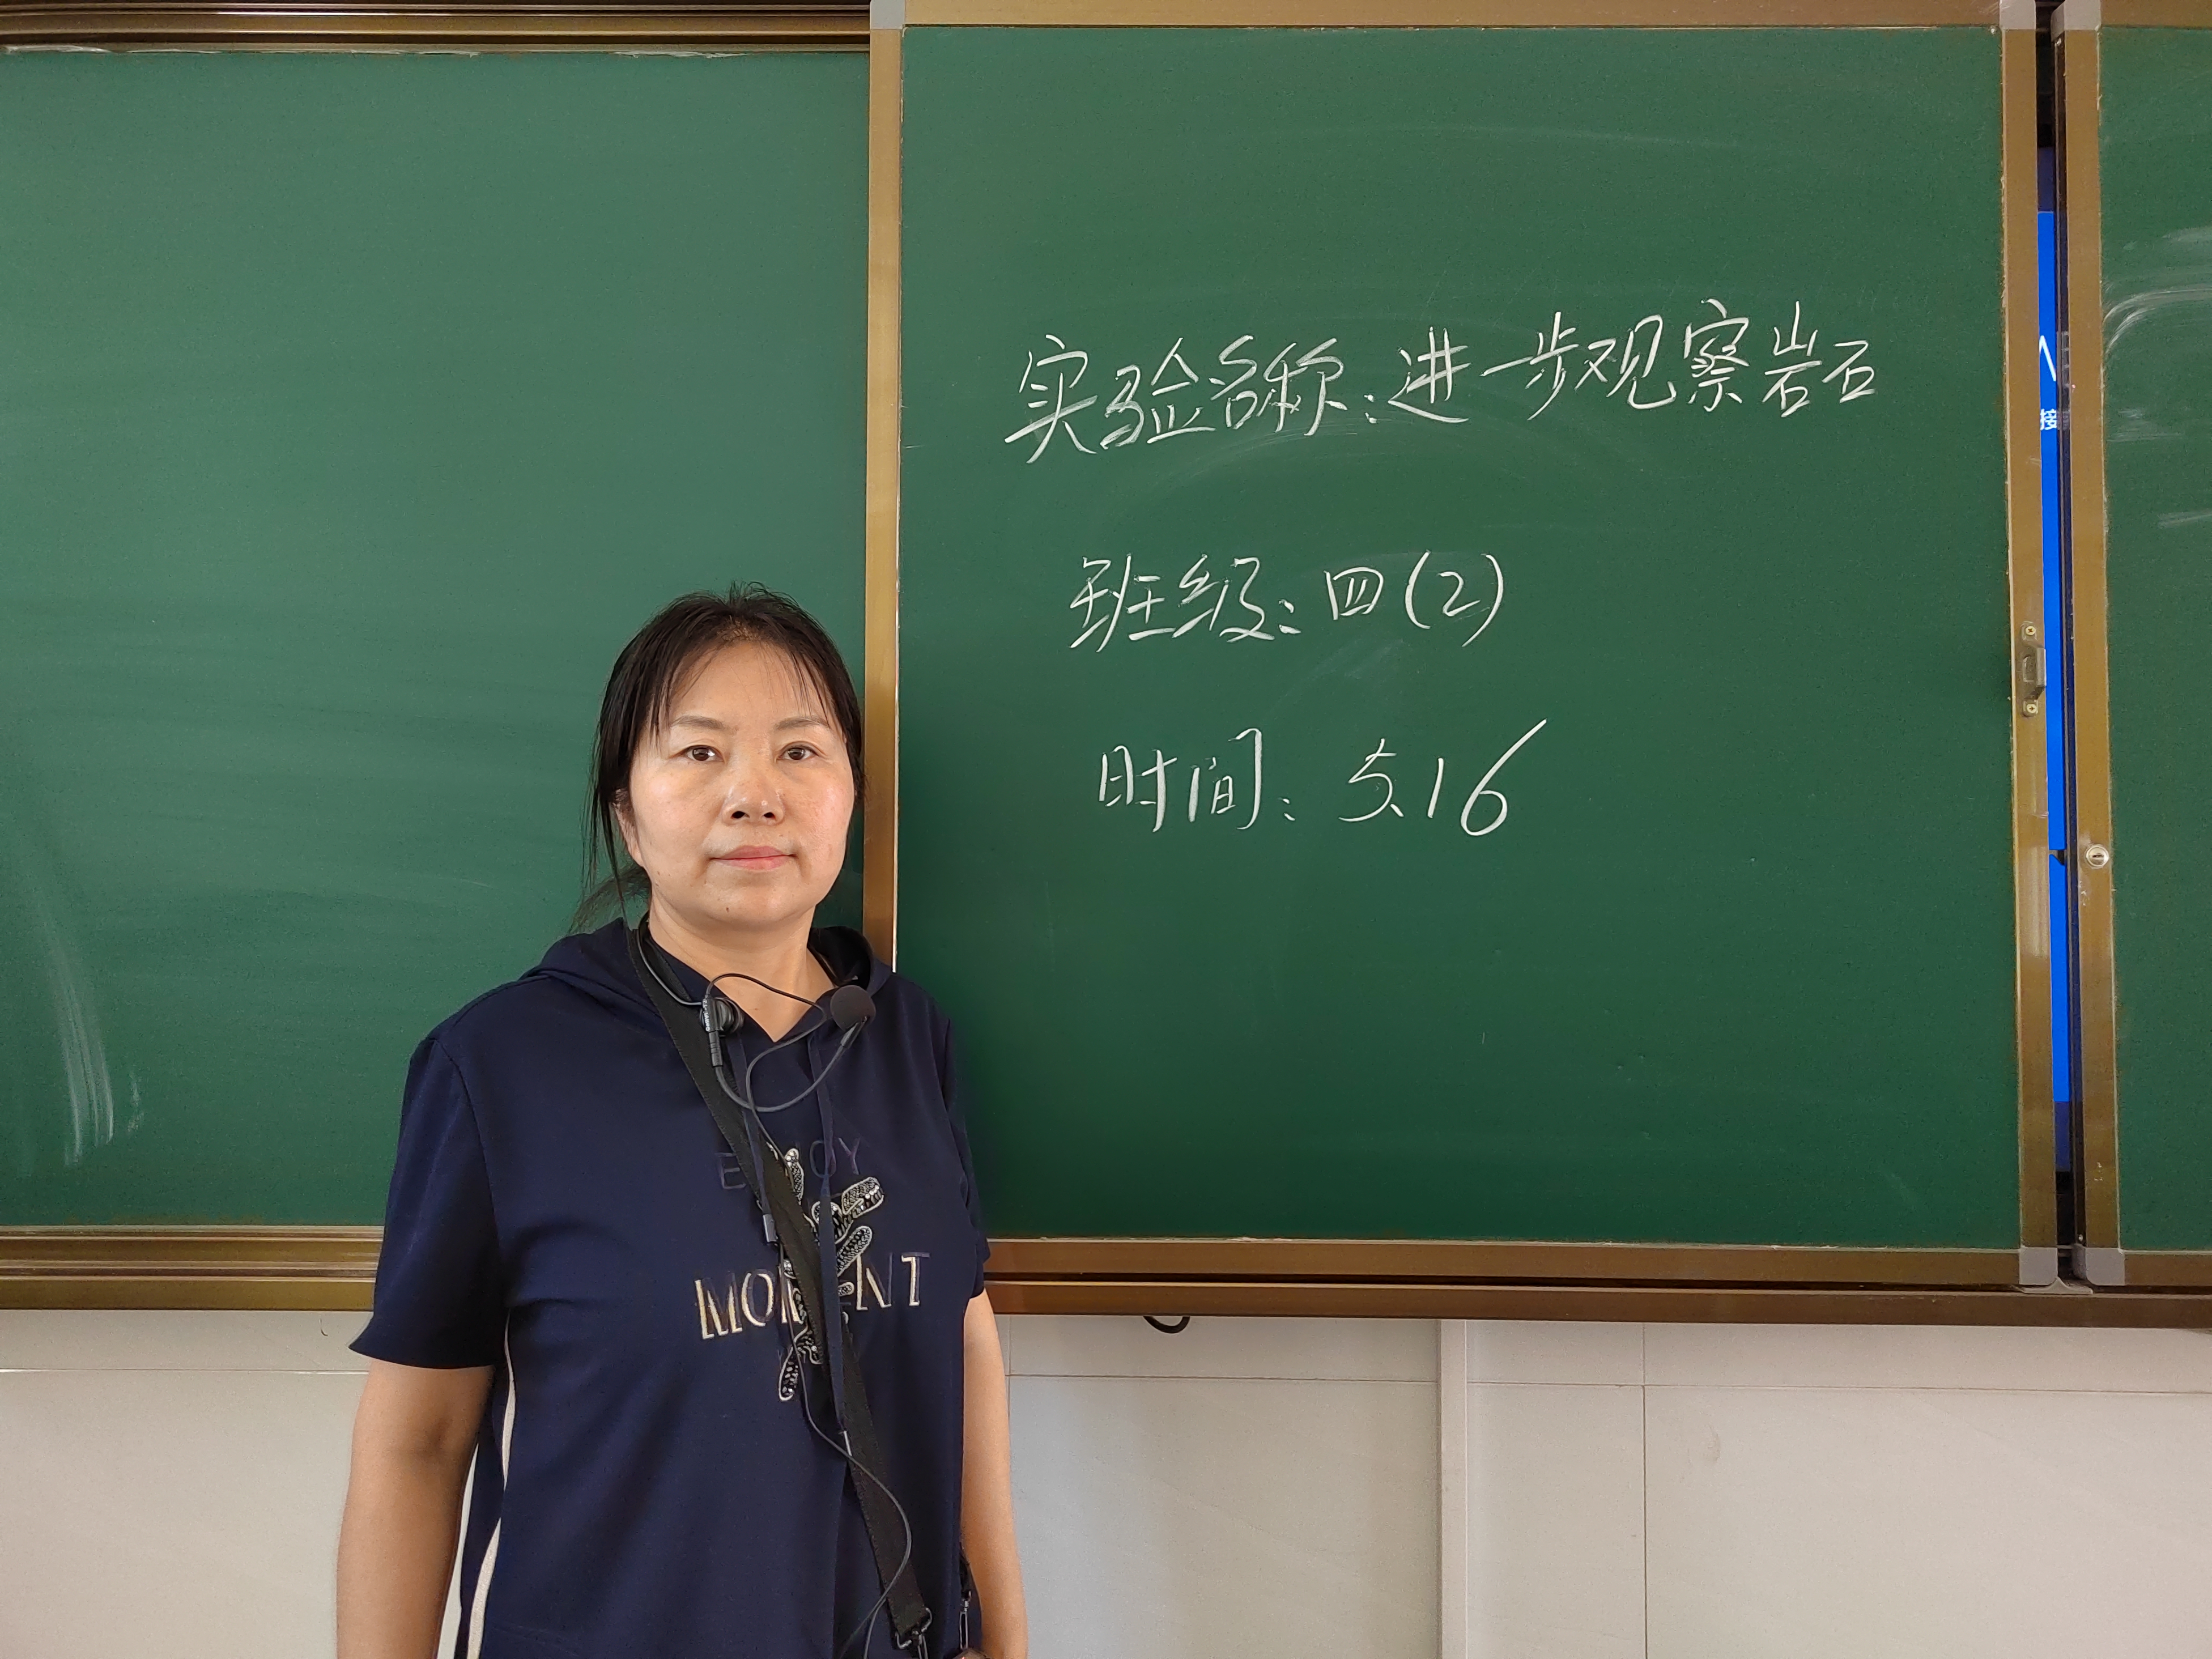 实验名称:进一步观察岩石
班级:四(2)
时间:5.16
ENJOY
MOMENT
接